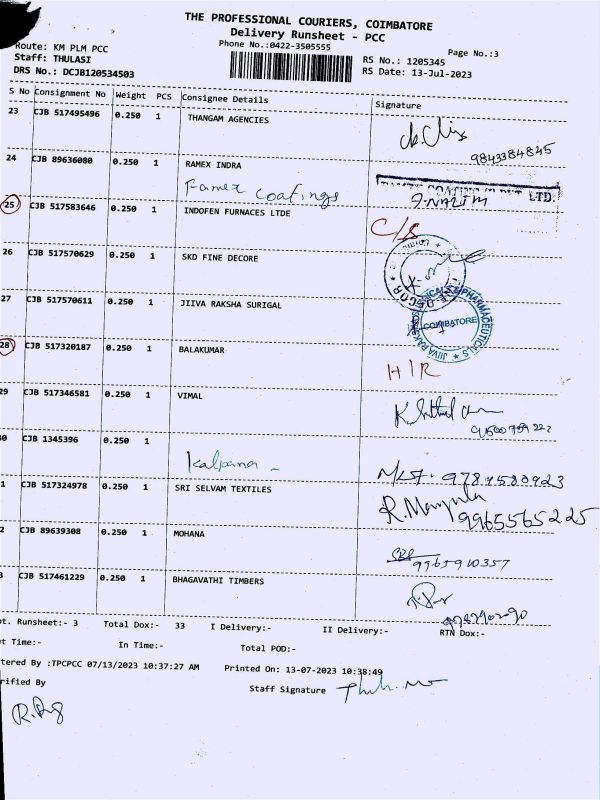 THE PROFESSIONAL COURIERS, COIMBATORE
Delivery Runsheet - PCC
Phone No.:0422-3505555
Page No.:3
Route: KM PLM PCC
Staff: THULASI
DRS No.: DCJB120534503
RS No.: 1205345
RS Date: 13-Jul-2023
S No Consignment No Weight PCS Consignee Details Signature
23 CJB 517495496 0.250 1 THANGAM AGENCIES
9843384845
24 CJB 89636080 0.250 1 RAMEX INDRA
Famex coatings
LTD.
25 CJB 517583646 0.250 1 INDOFEN FURNACES LTDE
C/S
26 CJB 517570629 0.250 1 SKD FINE DECORE
27 CJB 517570611 0.250 1 JIIVA RAKSHA SURIGAL
COIMBATORE
28 CJB 517320187 0.250 1 BALAKUMAR
H/R
29 CJB 517346581 0.250 1 VIMAL
0 CJB 1345396 0.250 1
Kalpana -
1 CJB 517324978 0.250 1 SRI SELVAM TEXTILES
R. Manjula
9965565225
2 CJB 89639308 0.250 1 MOHANA
9965910357
3 CJB 517461229 0.250 1 BHAGAVATHI TIMBERS
ot. Runsheet:- 3 Total Dox:- 33 I Delivery:- II Delivery:- RTN Dox:-
ut Time:- In Time:- Total POD:-
tered By :TPCPCC 07/13/2023 10:37:27 AM Printed On: 13-07-2023 10:38:49
rified By
Staff Signature